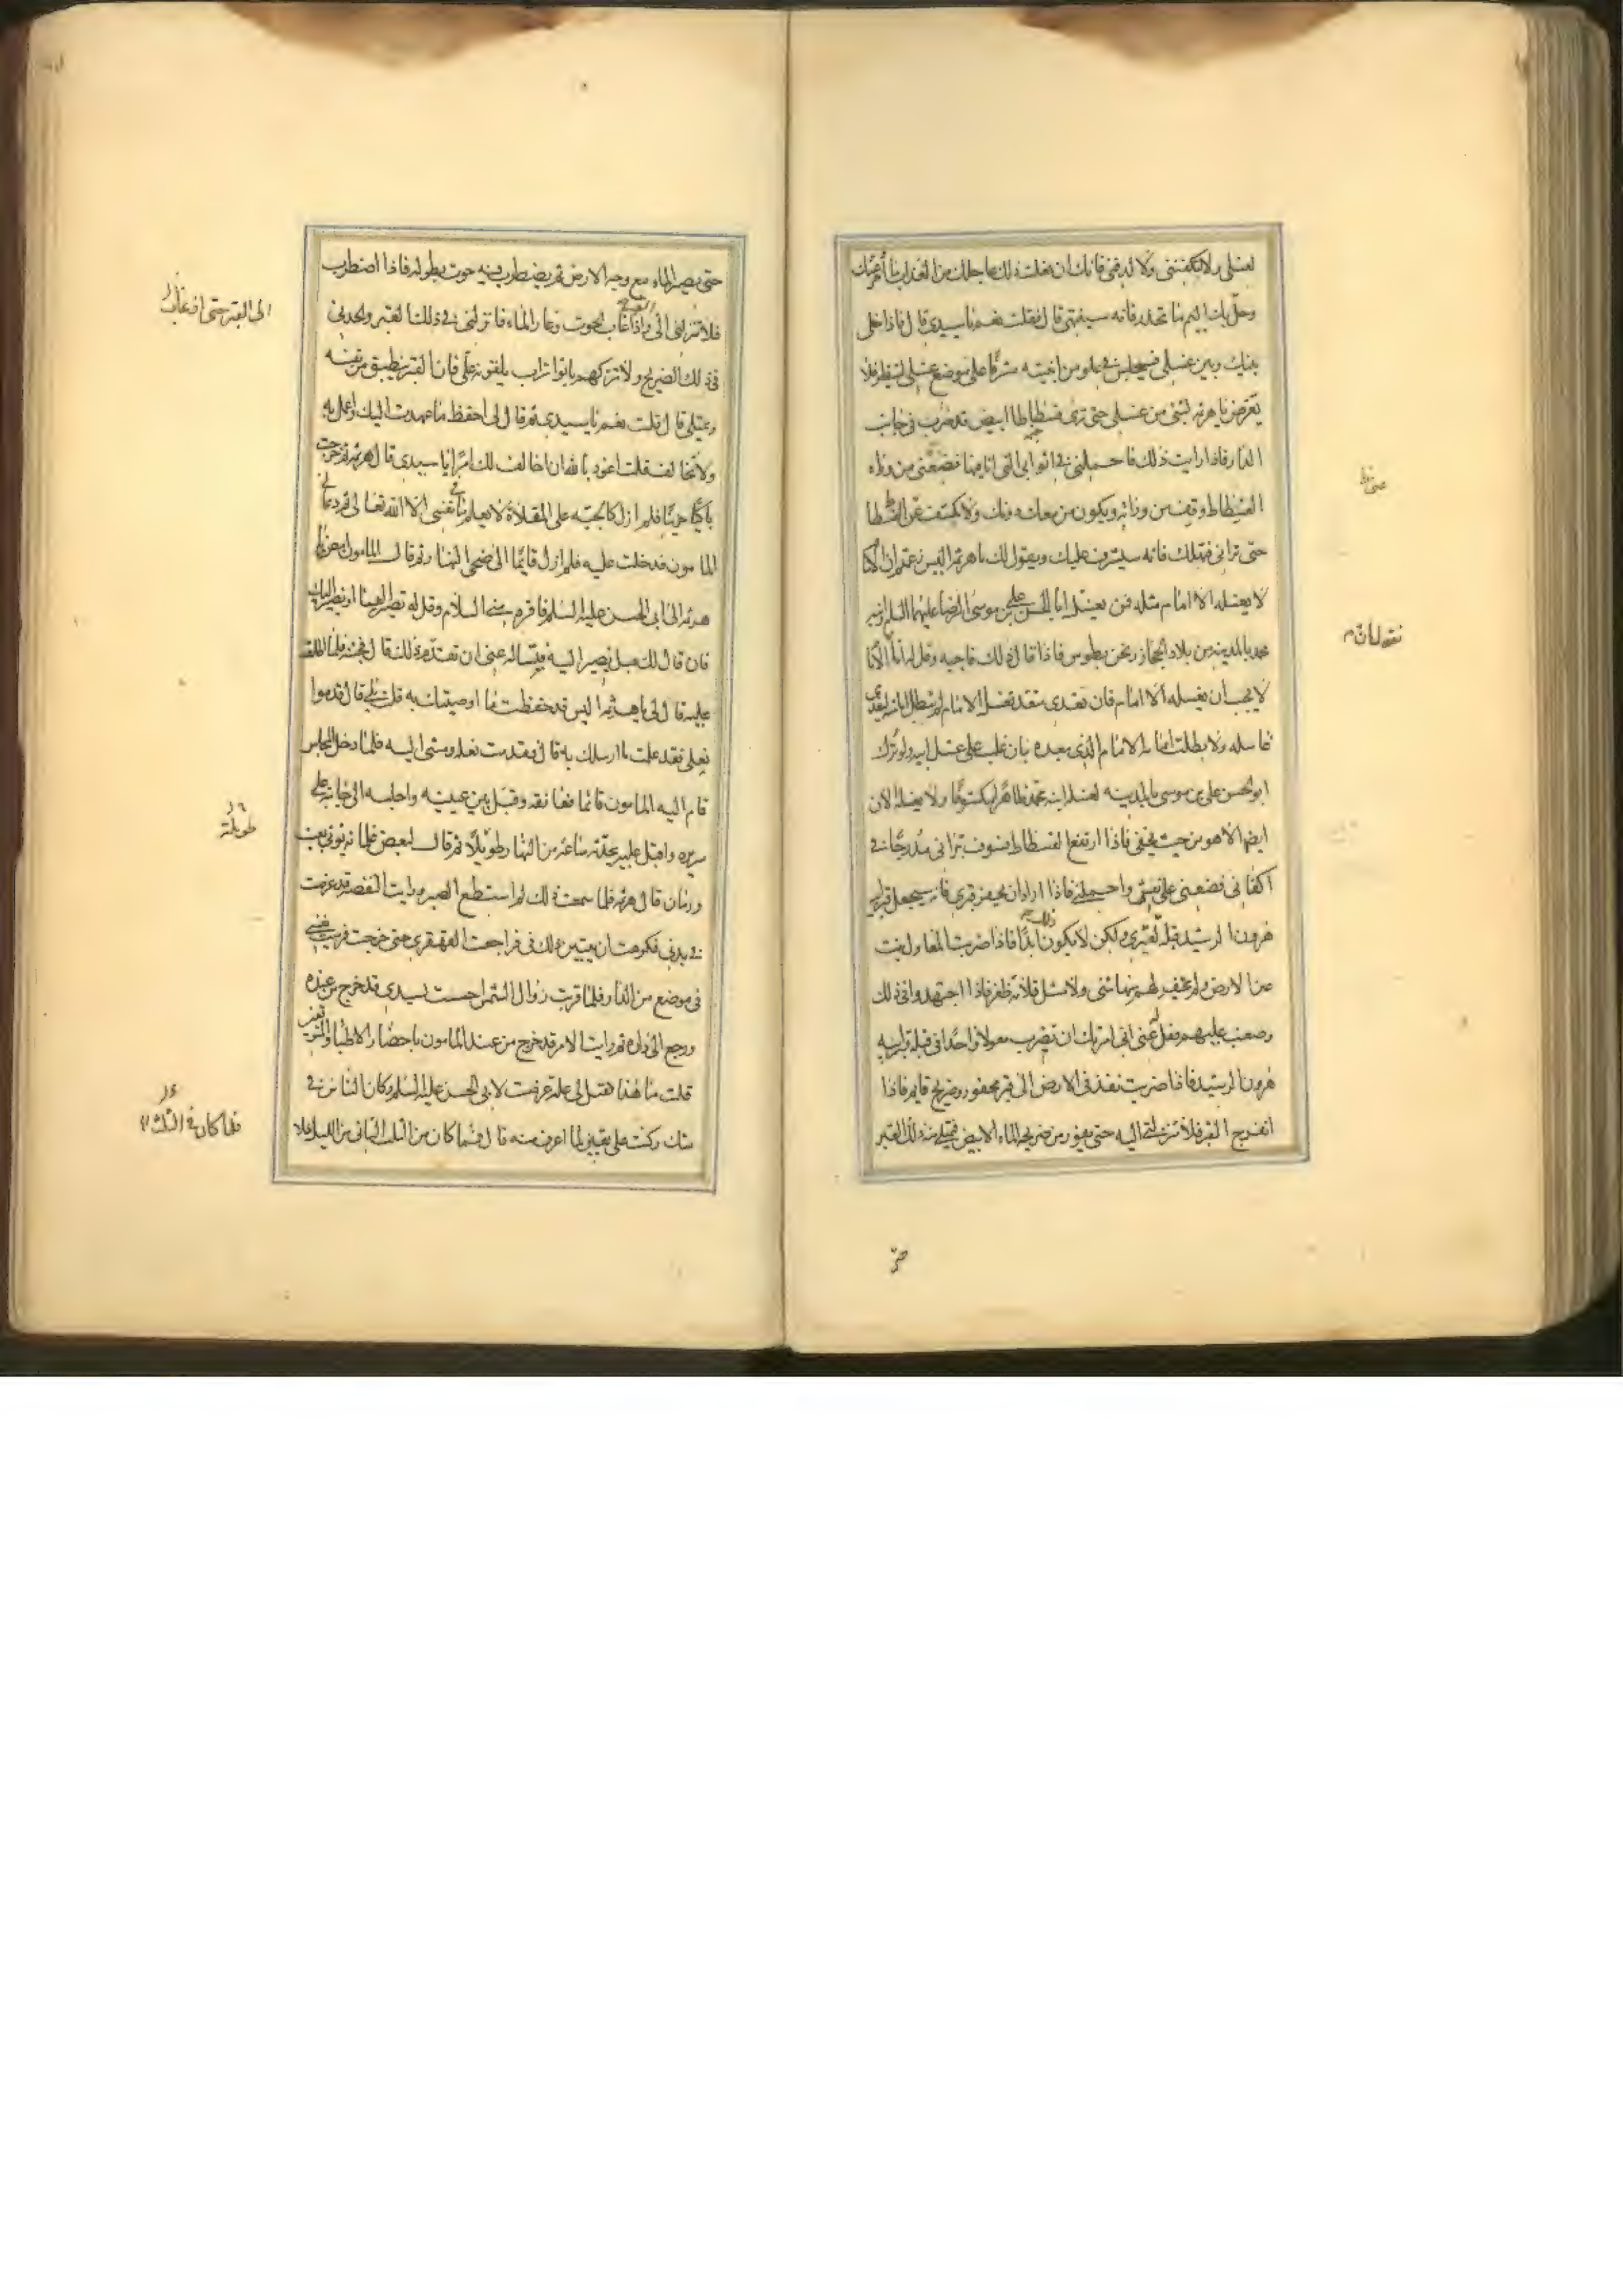 لغسلى ولا تكفننى ولا تدفنى فانك ان فعلت ذلك عاجلك من العذاب ما أخر عنك
وحل بك اليم ما تحذر فانه سينتهى قال فقلت نعم يا سيدى قال فاذا خلى
بينك وبين غسلى فيجلس فى علو من ابنيته مشرفا على موضع غسلى لينظر فلا
تتعرض يا هرثمه لشئ من غسلى حتى ترى فسطاطا ابيض قد ضرب فى جانب
الدار فاذا رايت ذلك فاحملنى فى اثوابى التى انا فيها فضعنى من وراء
الفسطاط وقف من ورائه ويكون من معك دونك ولا تكشف عن الفسطاط
حتى ترانى فتهلك فانه سيشرف عليك ويقول لك يا هرثمه اليس زعمتم ان الامام
لا يغسله الا امام مثله فمن يغسل ابا الحسن على بن موسى الرضا عليهما السلم وابنه
محمد بالمدينه من بلاد الحجاز ونحن بطوس فاذا قال ذلك فاجبه وقل له انا الامام
لا يجب ان يغسله الا امام فان تعدى متعد فغسل الامام لم تبطل امامته لتعدى
غاسله ولا بطلت امامه الامام الذى بعده بان غلب على غسل ابيه ولو ترك
ابو الحسن على بن موسى بالمدينه لغسله ابنه محمد ظاهرا مكشوفا ولا يغسله الان
ايضا الا هو من حيث يخفى فاذا ارتفع الفسطاط فسوف ترانى مدرجا فى
اكفانى فضعنى على نعش واحملنى فاذا اراد ان يحفر قبرى فانه سيجعل قبر ابيه
هرون الرشيد قبله لقبرى ولكن لا يكون ذلك ابدا فاذا ضربت المعاول نبت
عن الارض ولم يحفر لهم منها شئ ولا مثل قلامه ظفر فاذا اجتهدوا فى ذلك
وصعب عليهم فقل له عنى انى امرتك ان تضرب معولا واحدا فى قبله قبر ابيه
هرون الرشيد فاذا ضربت نفذ فى الارض الى قبر محفور وضريح قايم فاذا
انفرج القبر فلا تنزلنى اليه حتى يفور من ضريحه الماء الابيض فيمتلئ منه ذلك القبر
حتى يصير الماء مع وجه الارض ثم يضطرب فيه حوت بطوله فاذا اضطرب
فلا تنزلنى الى القبر واذا غاب الحوت وغار الماء فانزلنى فى ذلك القبر والحدنى
فى ذلك الضريح ولا تتركهم ياتوا تراب يلقونه على فان القبر ينطبق من نفسه
ويمتلى قال قلت نعم يا سيدى ثم قال لى احفظ ما عهدت اليك واعمل به
ولا تخالف قلت اعوذ بالله ان اخالف لك امرا يا سيدى قال هرثمه ثم خرجت
باكيا حزينا فلم ازل كالحبه على المقلاة لا يعلم ما فى نفسى الا الله تعالى ثم دعانى
المامون فدخلت عليه فلم ازل قايما الى ضحى النهار ثم قال المامون امض يا
هرثمه الى ابى الحسن عليه السلم فاقره منى السلام وقل له تصير الينا او نصير اليك
فان قال لك بل نصير اليه فتساله عنى ان تقدم ذلك قال فجئته فلما اطلعت
عليه قال لى يا هرثمه اليس قد حفظت ما اوصيتك به قلت بلى قال قدموا
نعلى فقد علمت ما ارسلك به قال فقدمت نعله ومشى اليه فلما دخل المجلس
قام اليه المامون قائما فعانقه وقبل بين عينيه واجلسه الى جانبه على
سريره واقبل عليه يحدثه ساعه من النهار طويلا ثم قال لبعض غلمانه يؤتى بعنب
ورمان قال هرثمه فلما سمعت ذلك لم استطع الصبر ورايت النفضه قد عرضت
فى بدنى فكرهت ان يتبين ذلك فى فتراجعت القهقرى حتى خرجت فرميت نفسى
فى موضع من الدار فلما قربت زوال الشمس احسست بسيدى قد خرج من عنده
ورجع الى داره ثم رايت الامر قد خرج من عند المامون باحضار الاطبا والمترفقين
قلت ما هذا فقيل لى علة عرضت لابى الحسن عليه السلم وكان الناس فى
شك وكنت على يقين لما اعرف منه قال فلما كان من الثلث الثانى من الليل علا
الى القبر حتى اذا غاب
طويلة
فلما كان فى الثلث